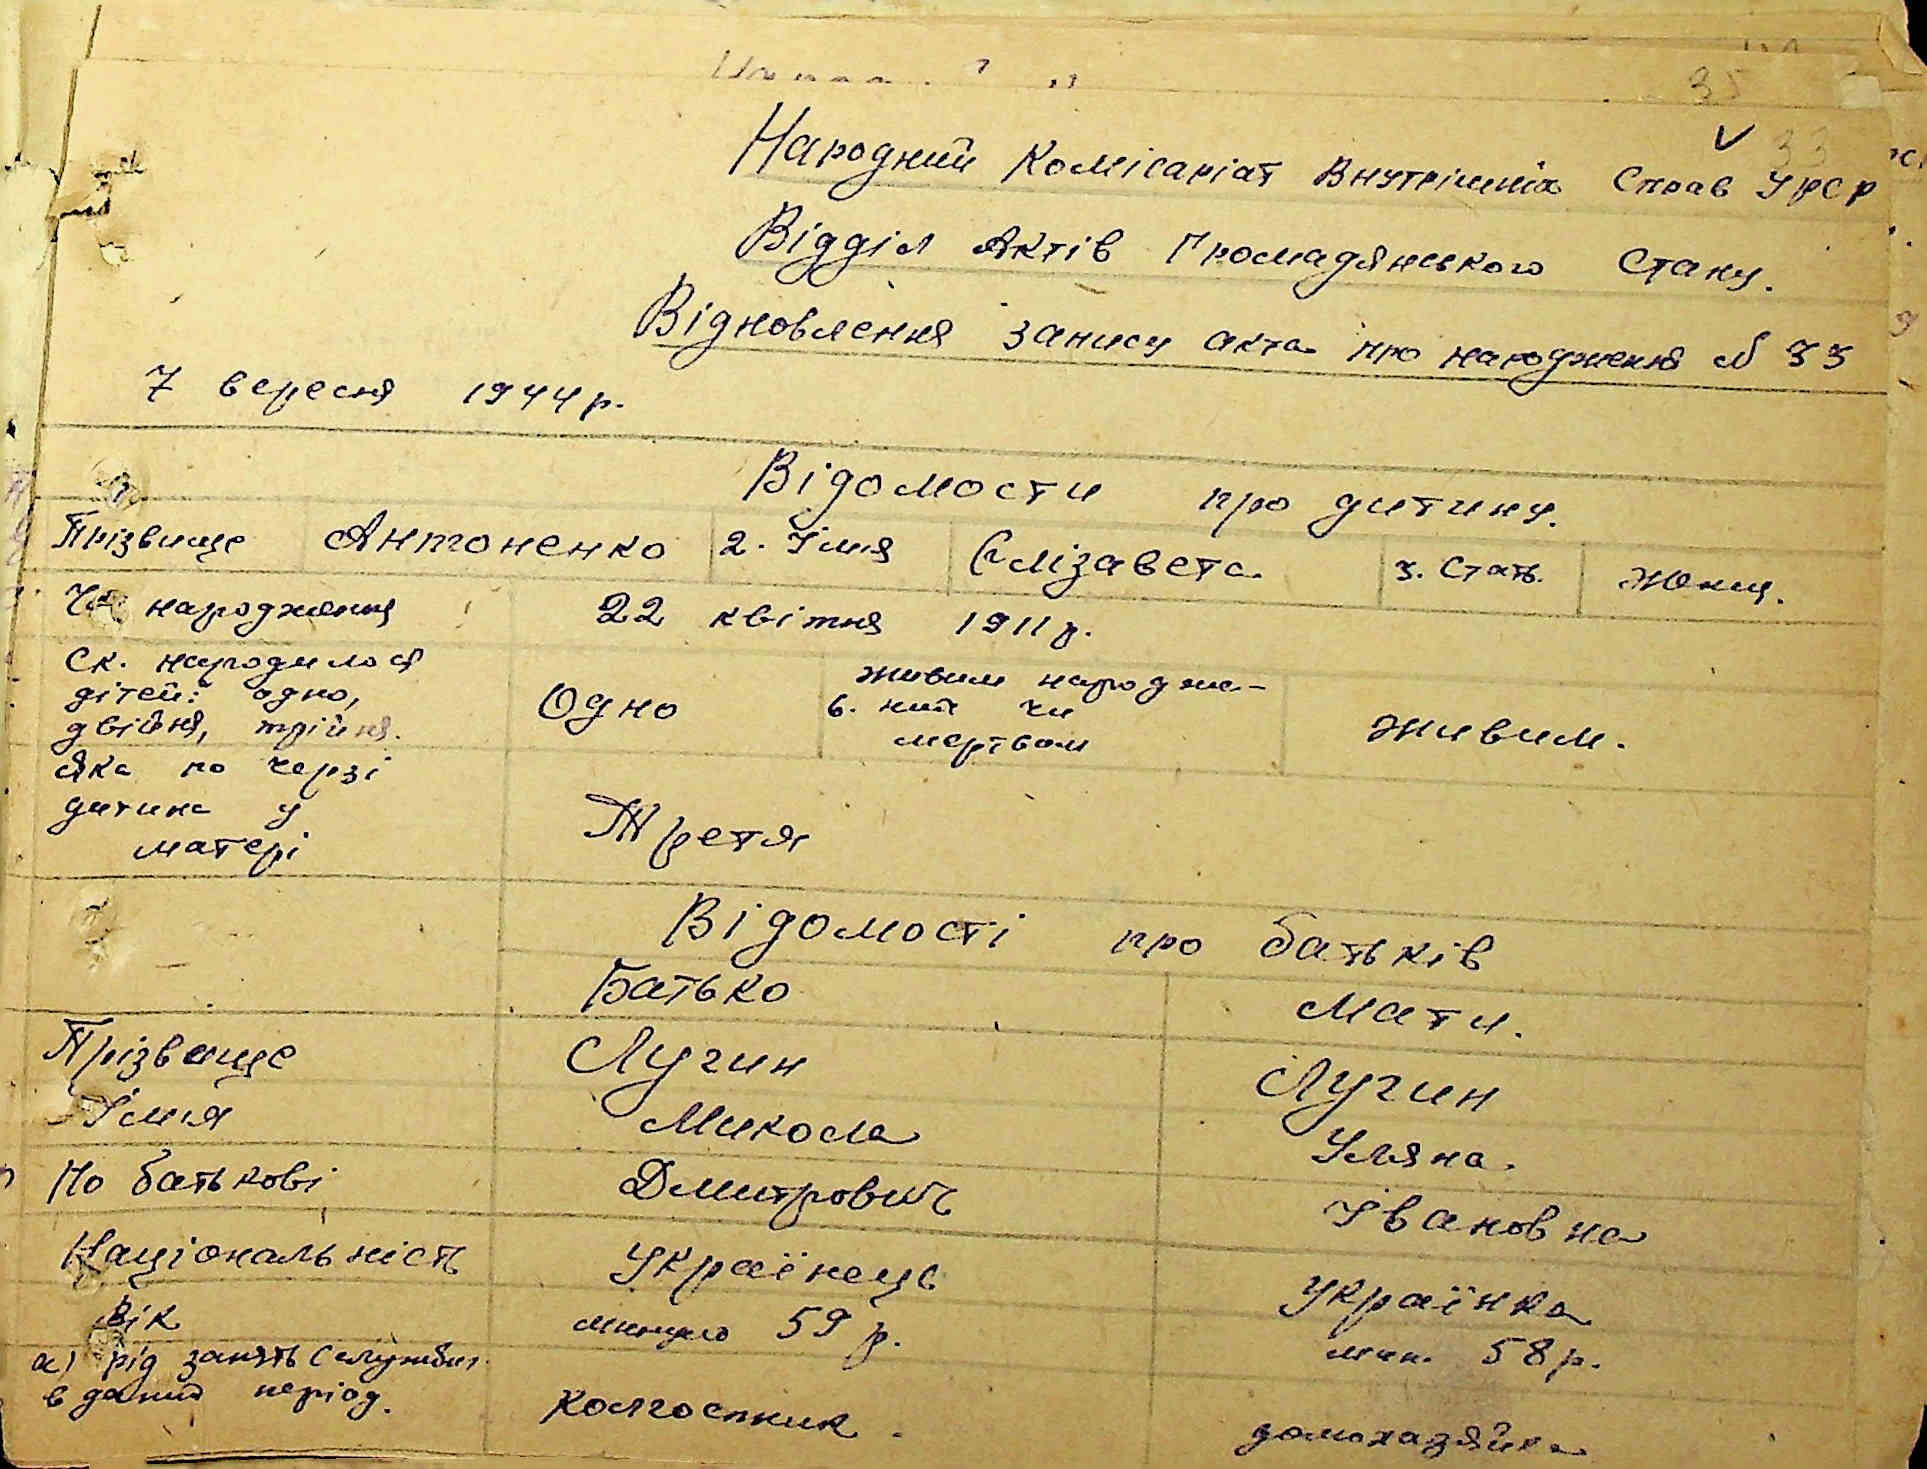 35
33
Народний Комісаріат Внутрішніх Справ УРСР
Відділ Актів Громадянського Стану.
Відновлення запису акта про народження № 33
7 вересня 1944 р.
Відомости про дитину.
Прізвище Антоненко 2. Імя Єлізавета 3. Стать. жоноч.
Час народження 22 квітня 1911 р.
Ск. народилося дітей: одно, двійня, трійня. Одно 6. живим народже-ний чи мертвим живим.
Яка по черзі дитина у матері Третя
Відомості про батьків
Батько Мати.
Прізвище Лугин Лугин
Імія Микола Уляна.
По батькові Дмитрович Івановна
Національність Українець Українка
Вік минуло 59 р. мин. 58 р.
а) рід занять (службы в даний період. колгоспник. домохазяйка